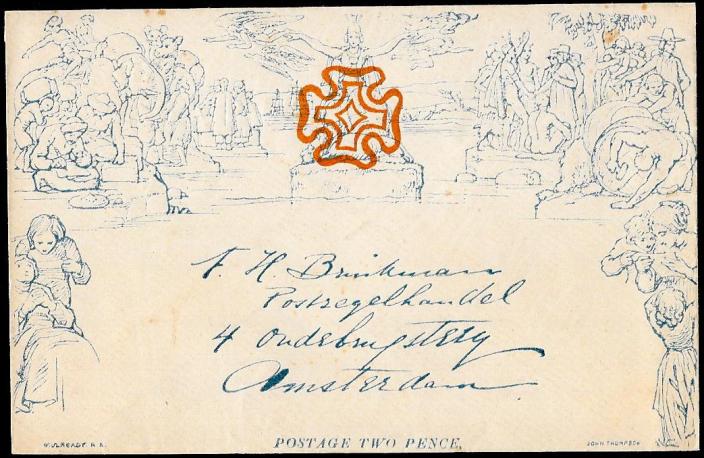 F. H. Brinkman
Postzegelhandel
4 Oudebrugsteeg
Amsterdam
W. MULREADY. R.A.
POSTAGE TWO PENCE.
JOHN THOMPSON